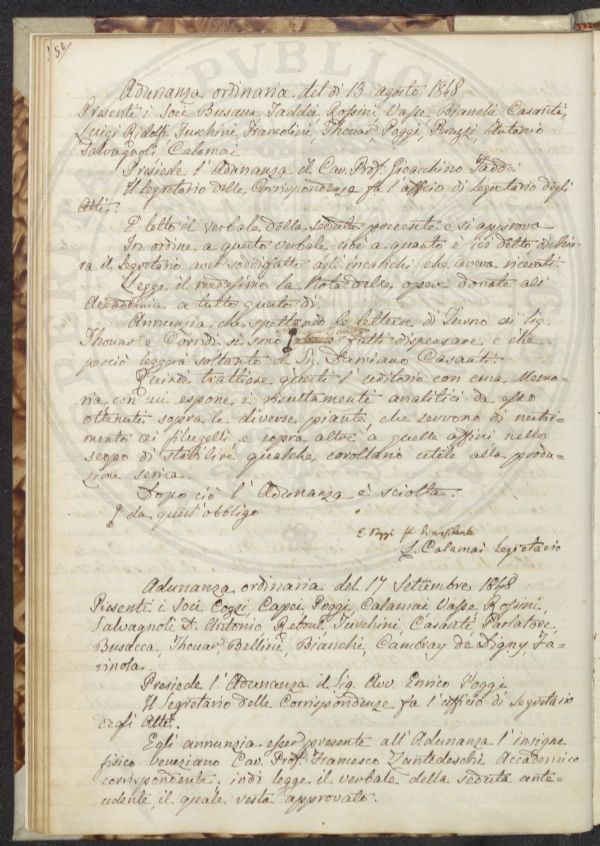 50
Adunanza ordinaria del dì 13 agosto 1848
Presenti i Soci Busacca Taddei Rossini Vasse Bianchi Casanti,
Luigi Ridolfi Tuschini, Franceolini, Thouar, Poggi, Antonio
Salvagnoli Calamai
Presiede l'Adunanza il Cav. Prof. Gioacchino Taddei
Il Segretario delle Corrispondenze fa l'afficio di Segretario degli
Atti.
È letto il verbale della seduta precedente e si approva
In ordine a questo verbale cioè a quanto è ivi detto dichia-
ra il Segretario aver soddisfatto agli incarichi che aveva ricevuti.
Legge il medesimo la Nota delle opere donate all'
Accademia a tutto questo dì
Annunzia che spettando le letture di Turno ai Sig.
Thouar e Corridi si sono fatti dispensare e che
perciò leggerà soltanto il Sig. Damiano Casanti.
Quindi trattiene questi l'uditorio con una Memo-
ria con cui espone i resultamenti analitici da esso
ottenuti sopra le diverse piante, che servono di nutri-
mento ai filugelli e sopra altre a quelle affini nello
scopo di stabilire qualche corollario utile alla produ-
zione serica.
Dopo ciò l'Adunanza è sciolta.
da quest'obbligo
E. Poggi ff. di presidente
L. Calamai Segretario
Adunanza ordinaria del 17 Settembre 1848
Presenti i Soci Cozzi, Capei Poggi, Calamai Vasse Rossini,
Salvagnoli D. Antonio Tuschini Casanti Parlatore
Busacca, Thouar Bellini, Bianchi, Cambray de Digny, Fa-
rinola.
Presiede l'Adunanza il Sig. Avv. Enrico Poggi
Il Segretario delle Corrispondenze fa l'ufficio di Segretario
degli Atti.
Egli annunzia esser presente all'Adunanza l'insigne
fisico Veneziano Cav. Prof. Francesco Zantedeschi Accademico
corrispondente. indi legge il verbale della seduta ante-
cedente, il quale resta approvato.